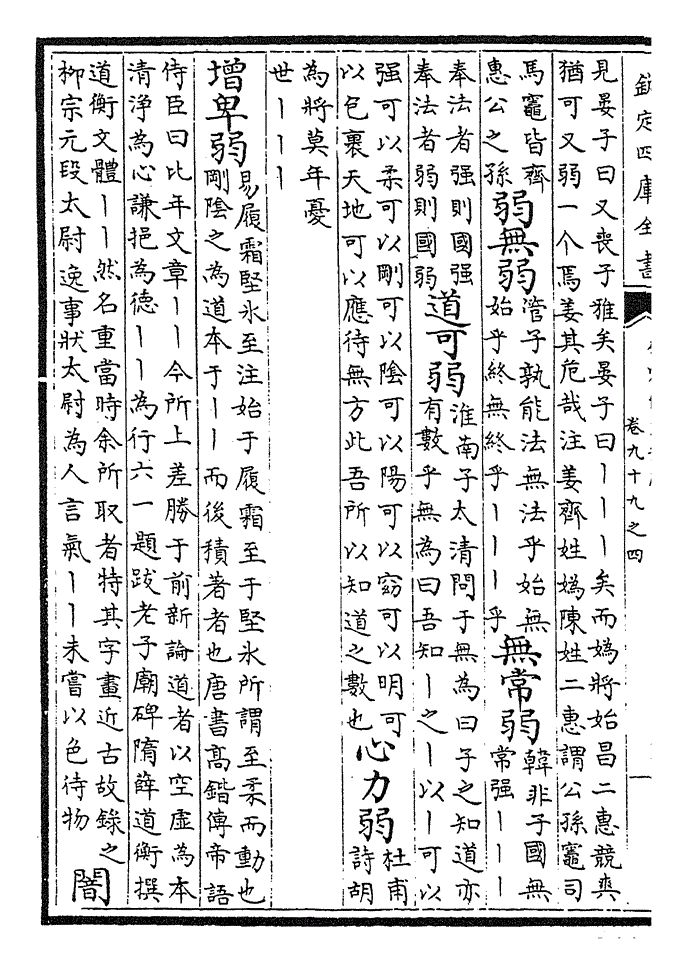 欽定四庫全書
卷九十九之四
一
見晏子曰又喪子雅矣晏子曰丨丨丨矣而媯將始昌二惠競爽
猶可又弱一个焉姜其危哉注姜齊姓媯陳姓二惠謂公孫竈司
馬竈皆齊
惠公之孫
弱無弱
管子孰能法無法乎始無
始乎終無終乎丨丨丨乎
無常弱
韓非子國無
常强丨丨丨
奉法者强則國强
奉法者弱則國弱
道可弱
淮南子太清問于無為曰子之知道亦
有數乎無為曰吾知丨之丨以丨可以
强可以柔可以剛可以陰可以陽可以窈可以明可
以包裹天地可以應待無方此吾所以知道之數也
心力弱
杜甫
詩胡
為將莫年憂
世丨丨丨
增卑弱
易履霜堅氷至注始于履霜至于堅氷所謂至柔而動也
剛陰之為道本于丨丨而後積著者也唐書高鍇傳帝語
侍臣曰比年文章丨丨今所上差勝于前新論道者以空虛為本
清浄為心謙挹為德丨丨為行六一題跋老子廟碑隋薛道衡撰
道衡文體丨丨然名重當時余所取者特其字畫近古故錄之
柳宗元段太尉逸事狀太尉為人言氣丨丨未嘗以色待物
闇